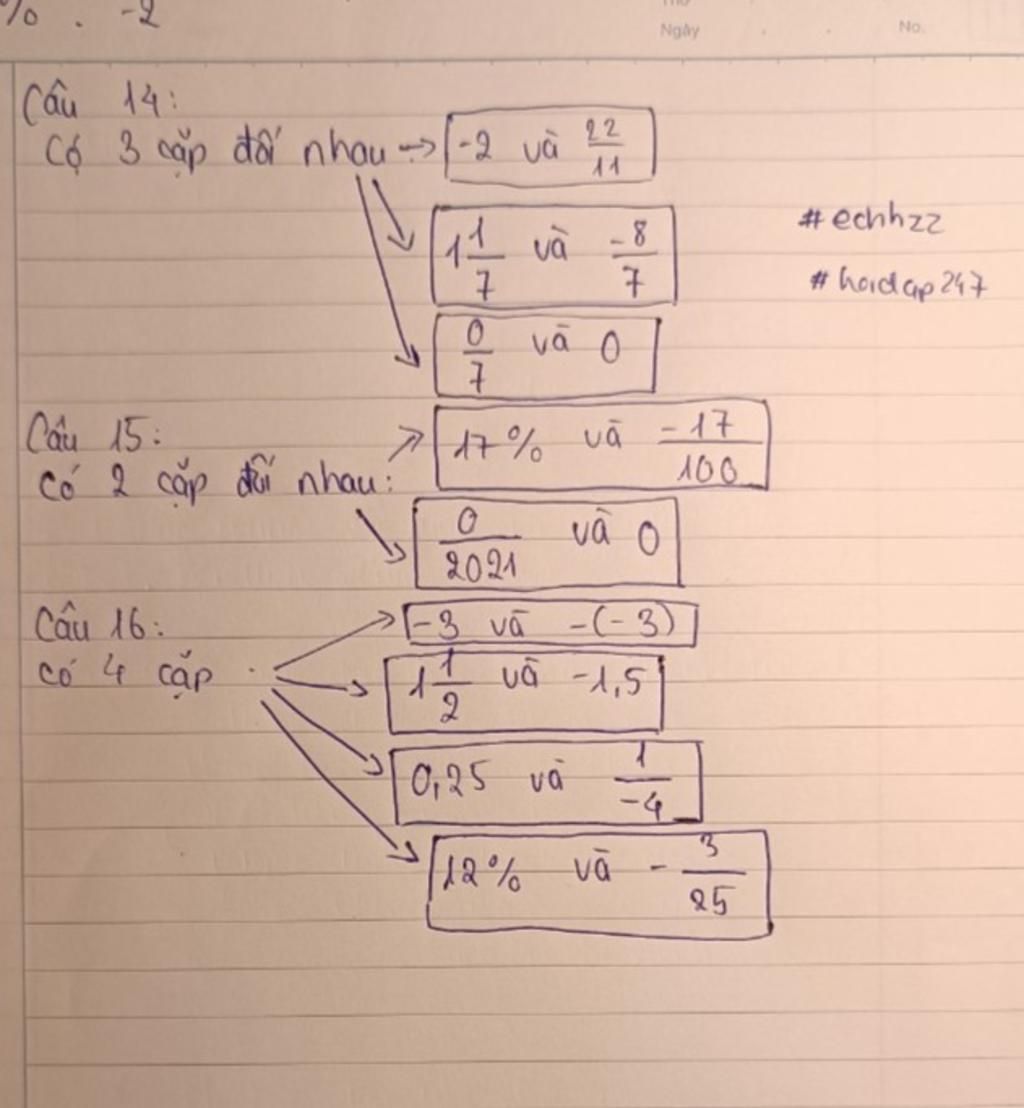 % . -2
Thứ
Ngày . . No.
Câu 14:
Có 3 cặp đối nhau → -2 và 22/11
1 1/7 và -8/7
#echhzz
#hoidap247
0/7 và 0
Câu 15:
Có 2 cặp đối nhau:
17% và -17/100
0/2021 và 0
Câu 16:
có 4 cặp
-3 và -(-3)
1 1/2 và -1,5
0,25 và 1/-4
12% và - 3/25